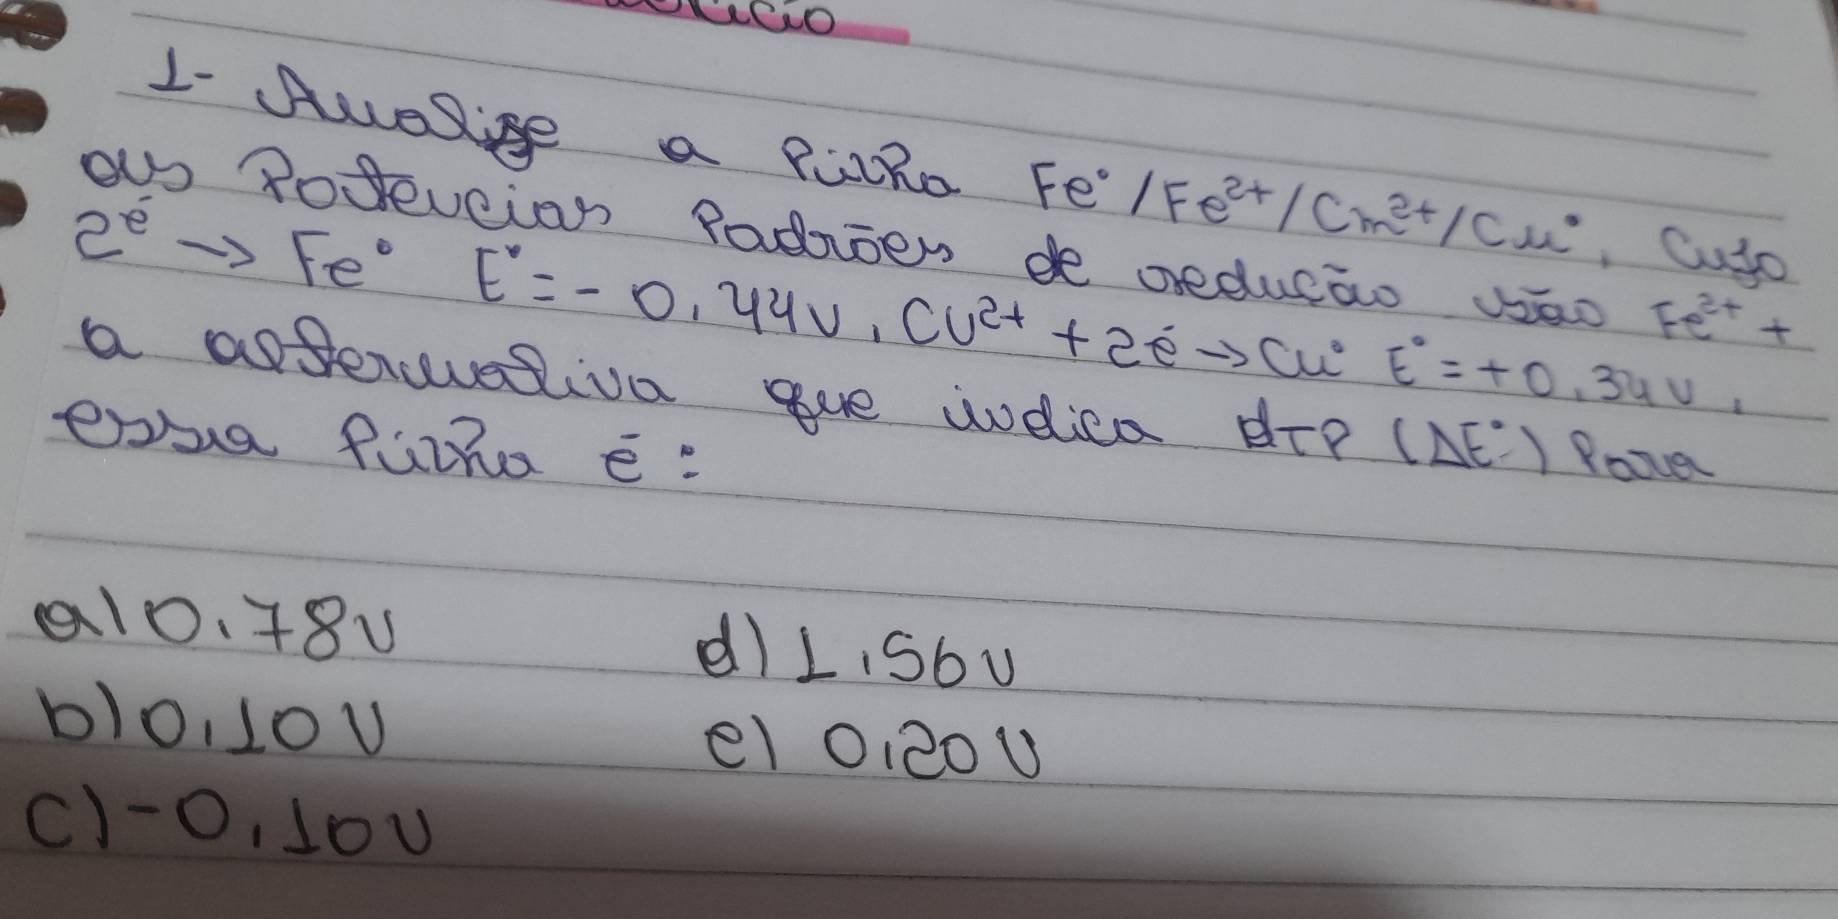 1- Analise a Pilha Fe°/Fe²⁺/Cm²⁺/Cu°, Cujo
as Potenciais Padrões de redução são Fe²⁺ +
2é → Fe° E° = - 0,44v, CU²⁺ + 2é → Cu° E° = + 0,34v,
a alternativa que indica dTP (ΔE°) Para
essa Pilha é:
a) 0,78v
b) 0,10V
c) -0,10v
d) 1,56v
e) 0,20V